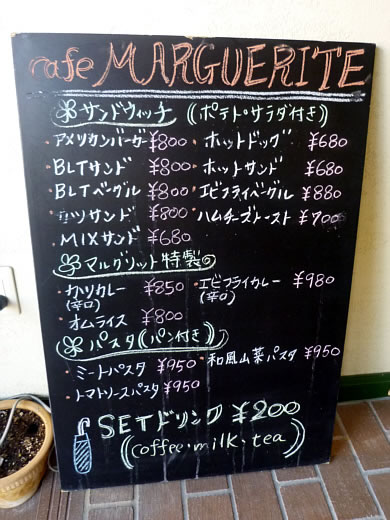 cafe MARGUERITE
サンドウィッチ (ポテト・サラダ付き)
・アメリカンバーガー ¥800 ・ホットドッグ ¥680
・BLTサンド ¥800 ・ホットサンド ¥680
・BLTベーグル ¥800 ・エビフライベーグル ¥880
・カツサンド ¥800 ・ハムチーズトースト ¥700
・MIXサンド ¥680
マルグリット特製
・カツカレー ¥850 ・エビフライカレー ¥980
(辛口) (辛口)
・オムライス ¥800
パスタ(パン付き)
・ミートパスタ ¥950 ・和風山菜パスタ ¥950
・トマトソースパスタ ¥950
SETドリンク ¥200
(coffee・milk・tea)